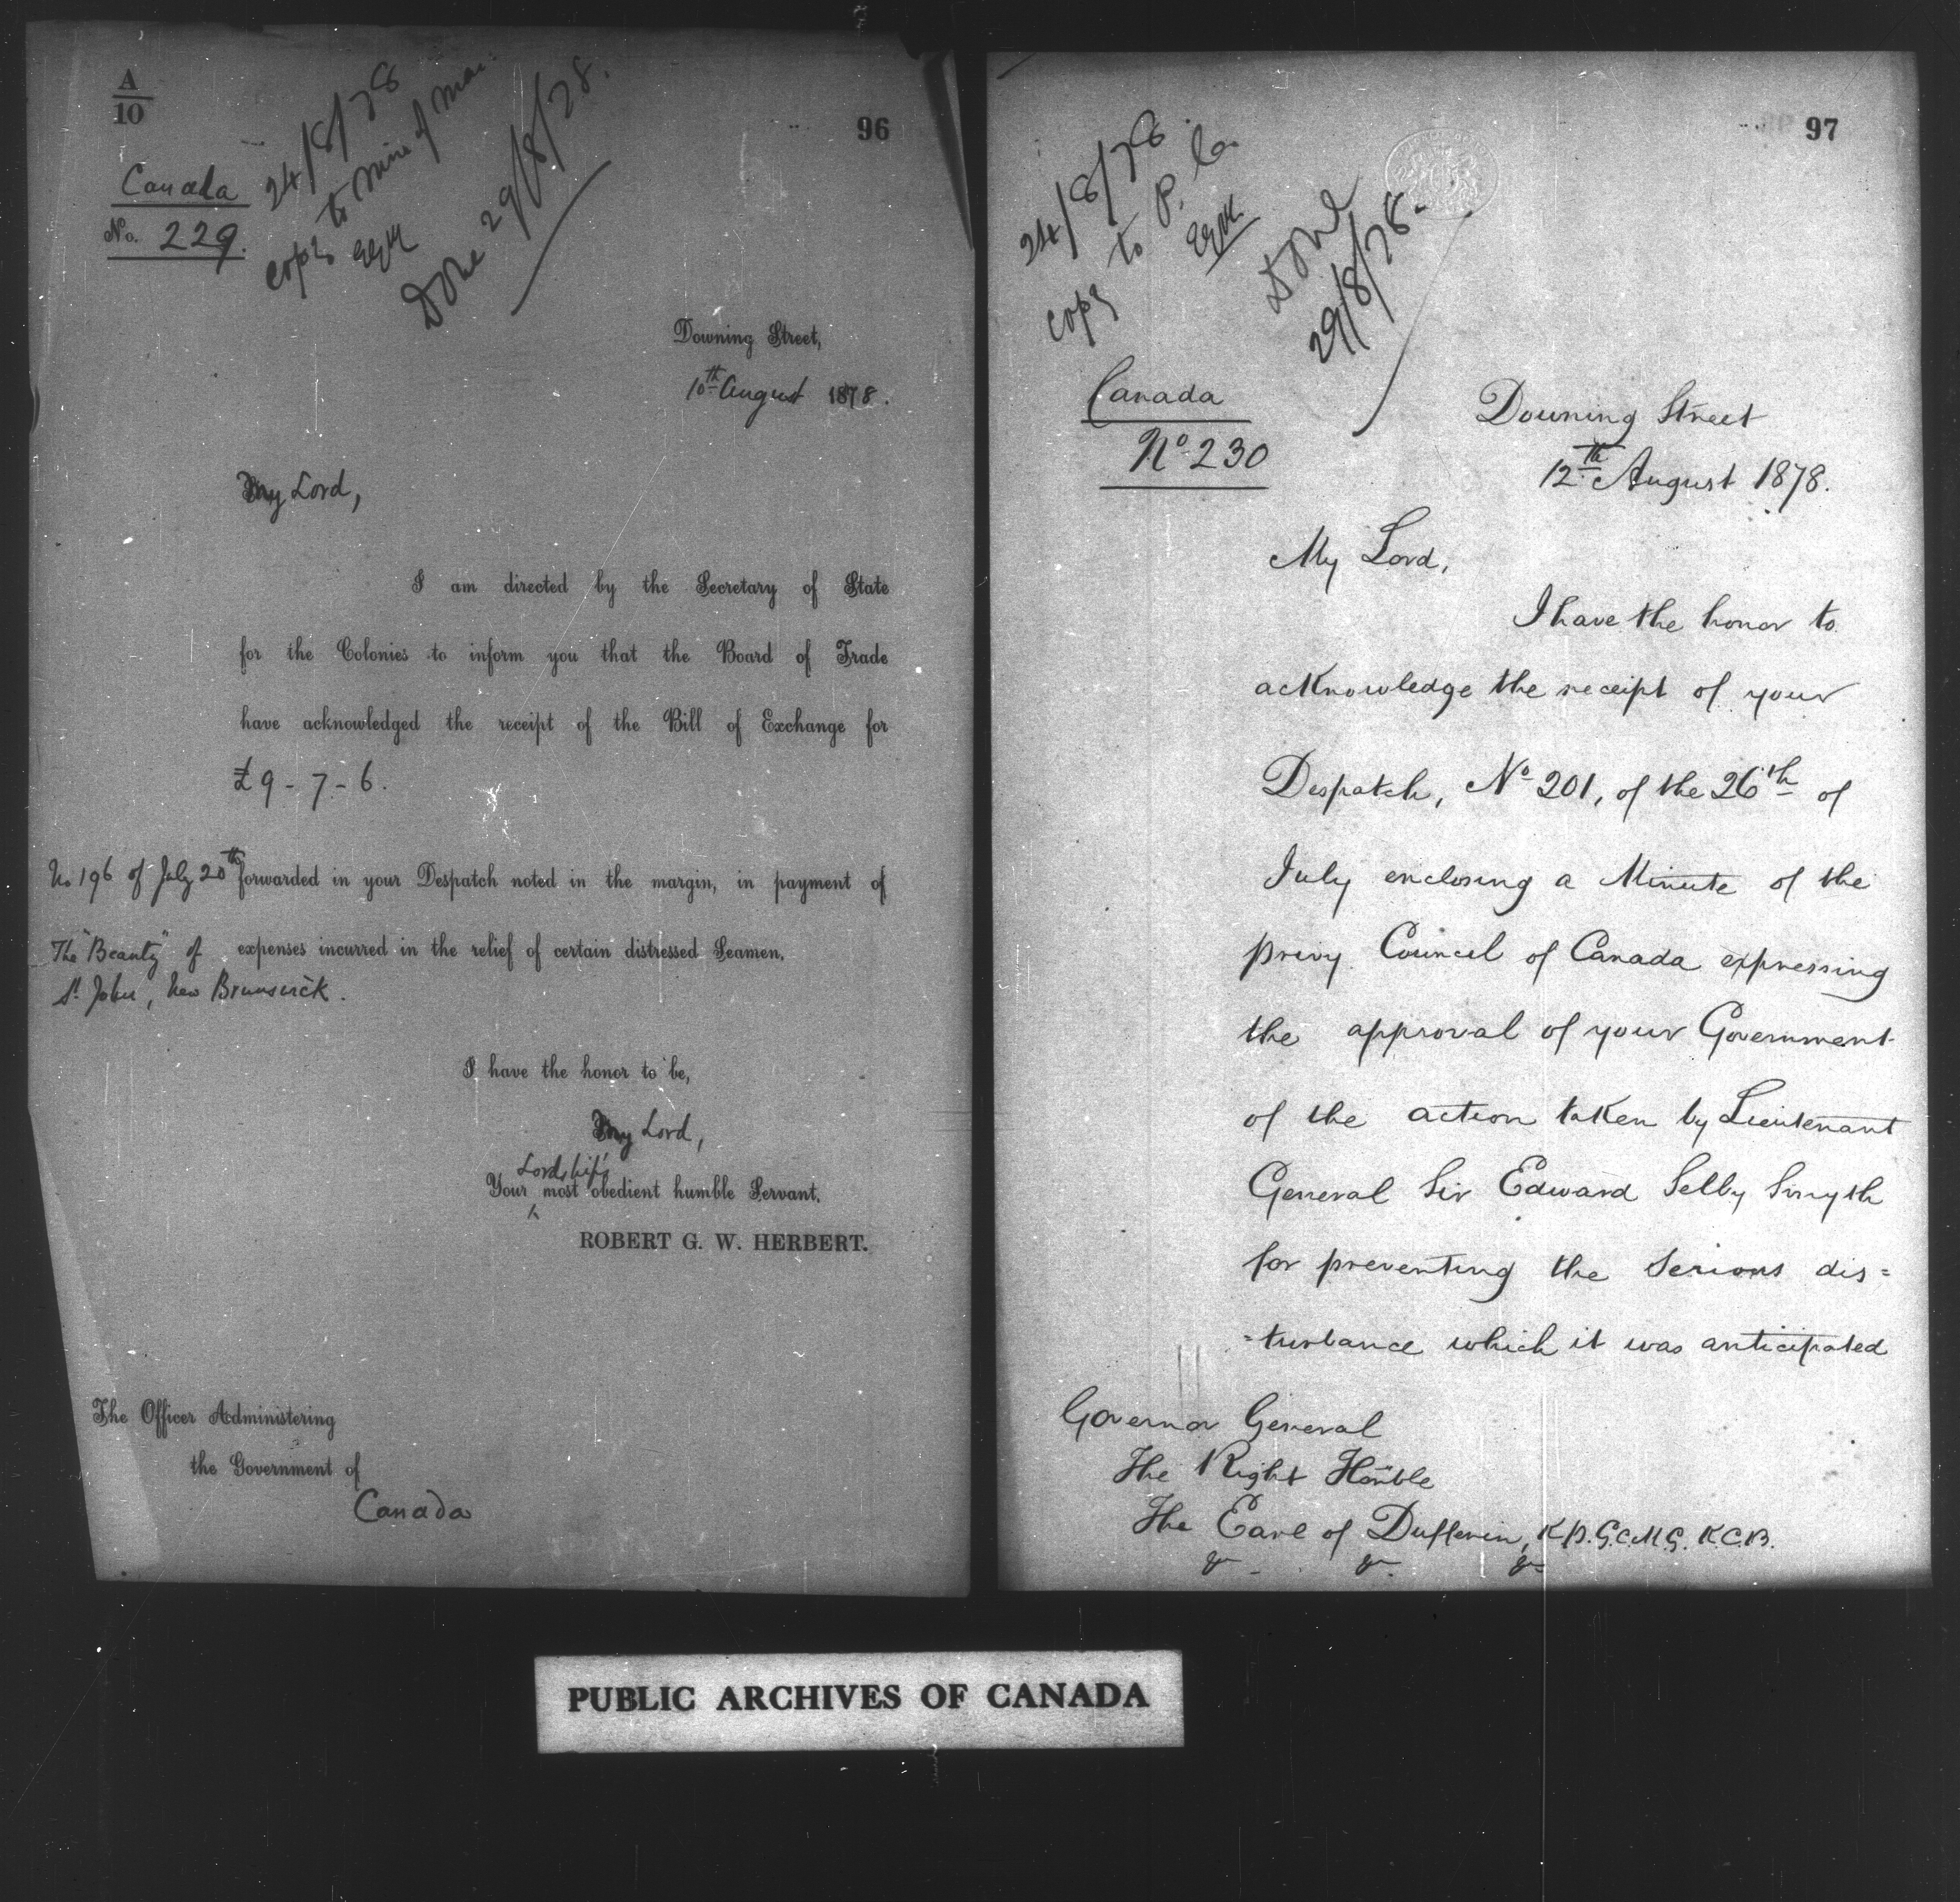 A
10
96
Canada
No. 229.
24/8/78
Copy to Min of Mar:
EGPM
Done 29/8/78.
Downing Street,
10th August 1878.
My Lord,
I am directed by the Secretary of State
for the Colonies to inform you that the Board of Trade
have acknowledged the receipt of the Bill of Exchange for
£9-7-6.
No 196 of July 20th forwarded in your Despatch noted in the margin, in payment of
The "Beauty" of expenses incurred in the relief of certain distressed Seamen.
St. John, New Brunswick.
I have the honor to be,
My Lord,
Lordship's
Your most obedient humble Servant.
ROBERT G. W. HERBERT.
The Officer Administering
the Government of
Canada
97
24/8/78
Copy to P. Co.
Done
29/8/78.
Canada
No 230
Downing Street
12th August 1878.
My Lord,
I have the honor to
acknowledge the receipt of your
Despatch, No 201, of the 26th of
July enclosing a Minute of the
Privy Council of Canada expressing
the approval of your Government
of the action taken by Lieutenant
General Sir Edward Selby Smyth
for preventing the serious dis=
=turbance which it was anticipated
Governor General
The Right Honble
The Earl of Dufferin, K.P. G.C.M.G. K.C.B.
&c &c &c
PUBLIC ARCHIVES OF CANADA